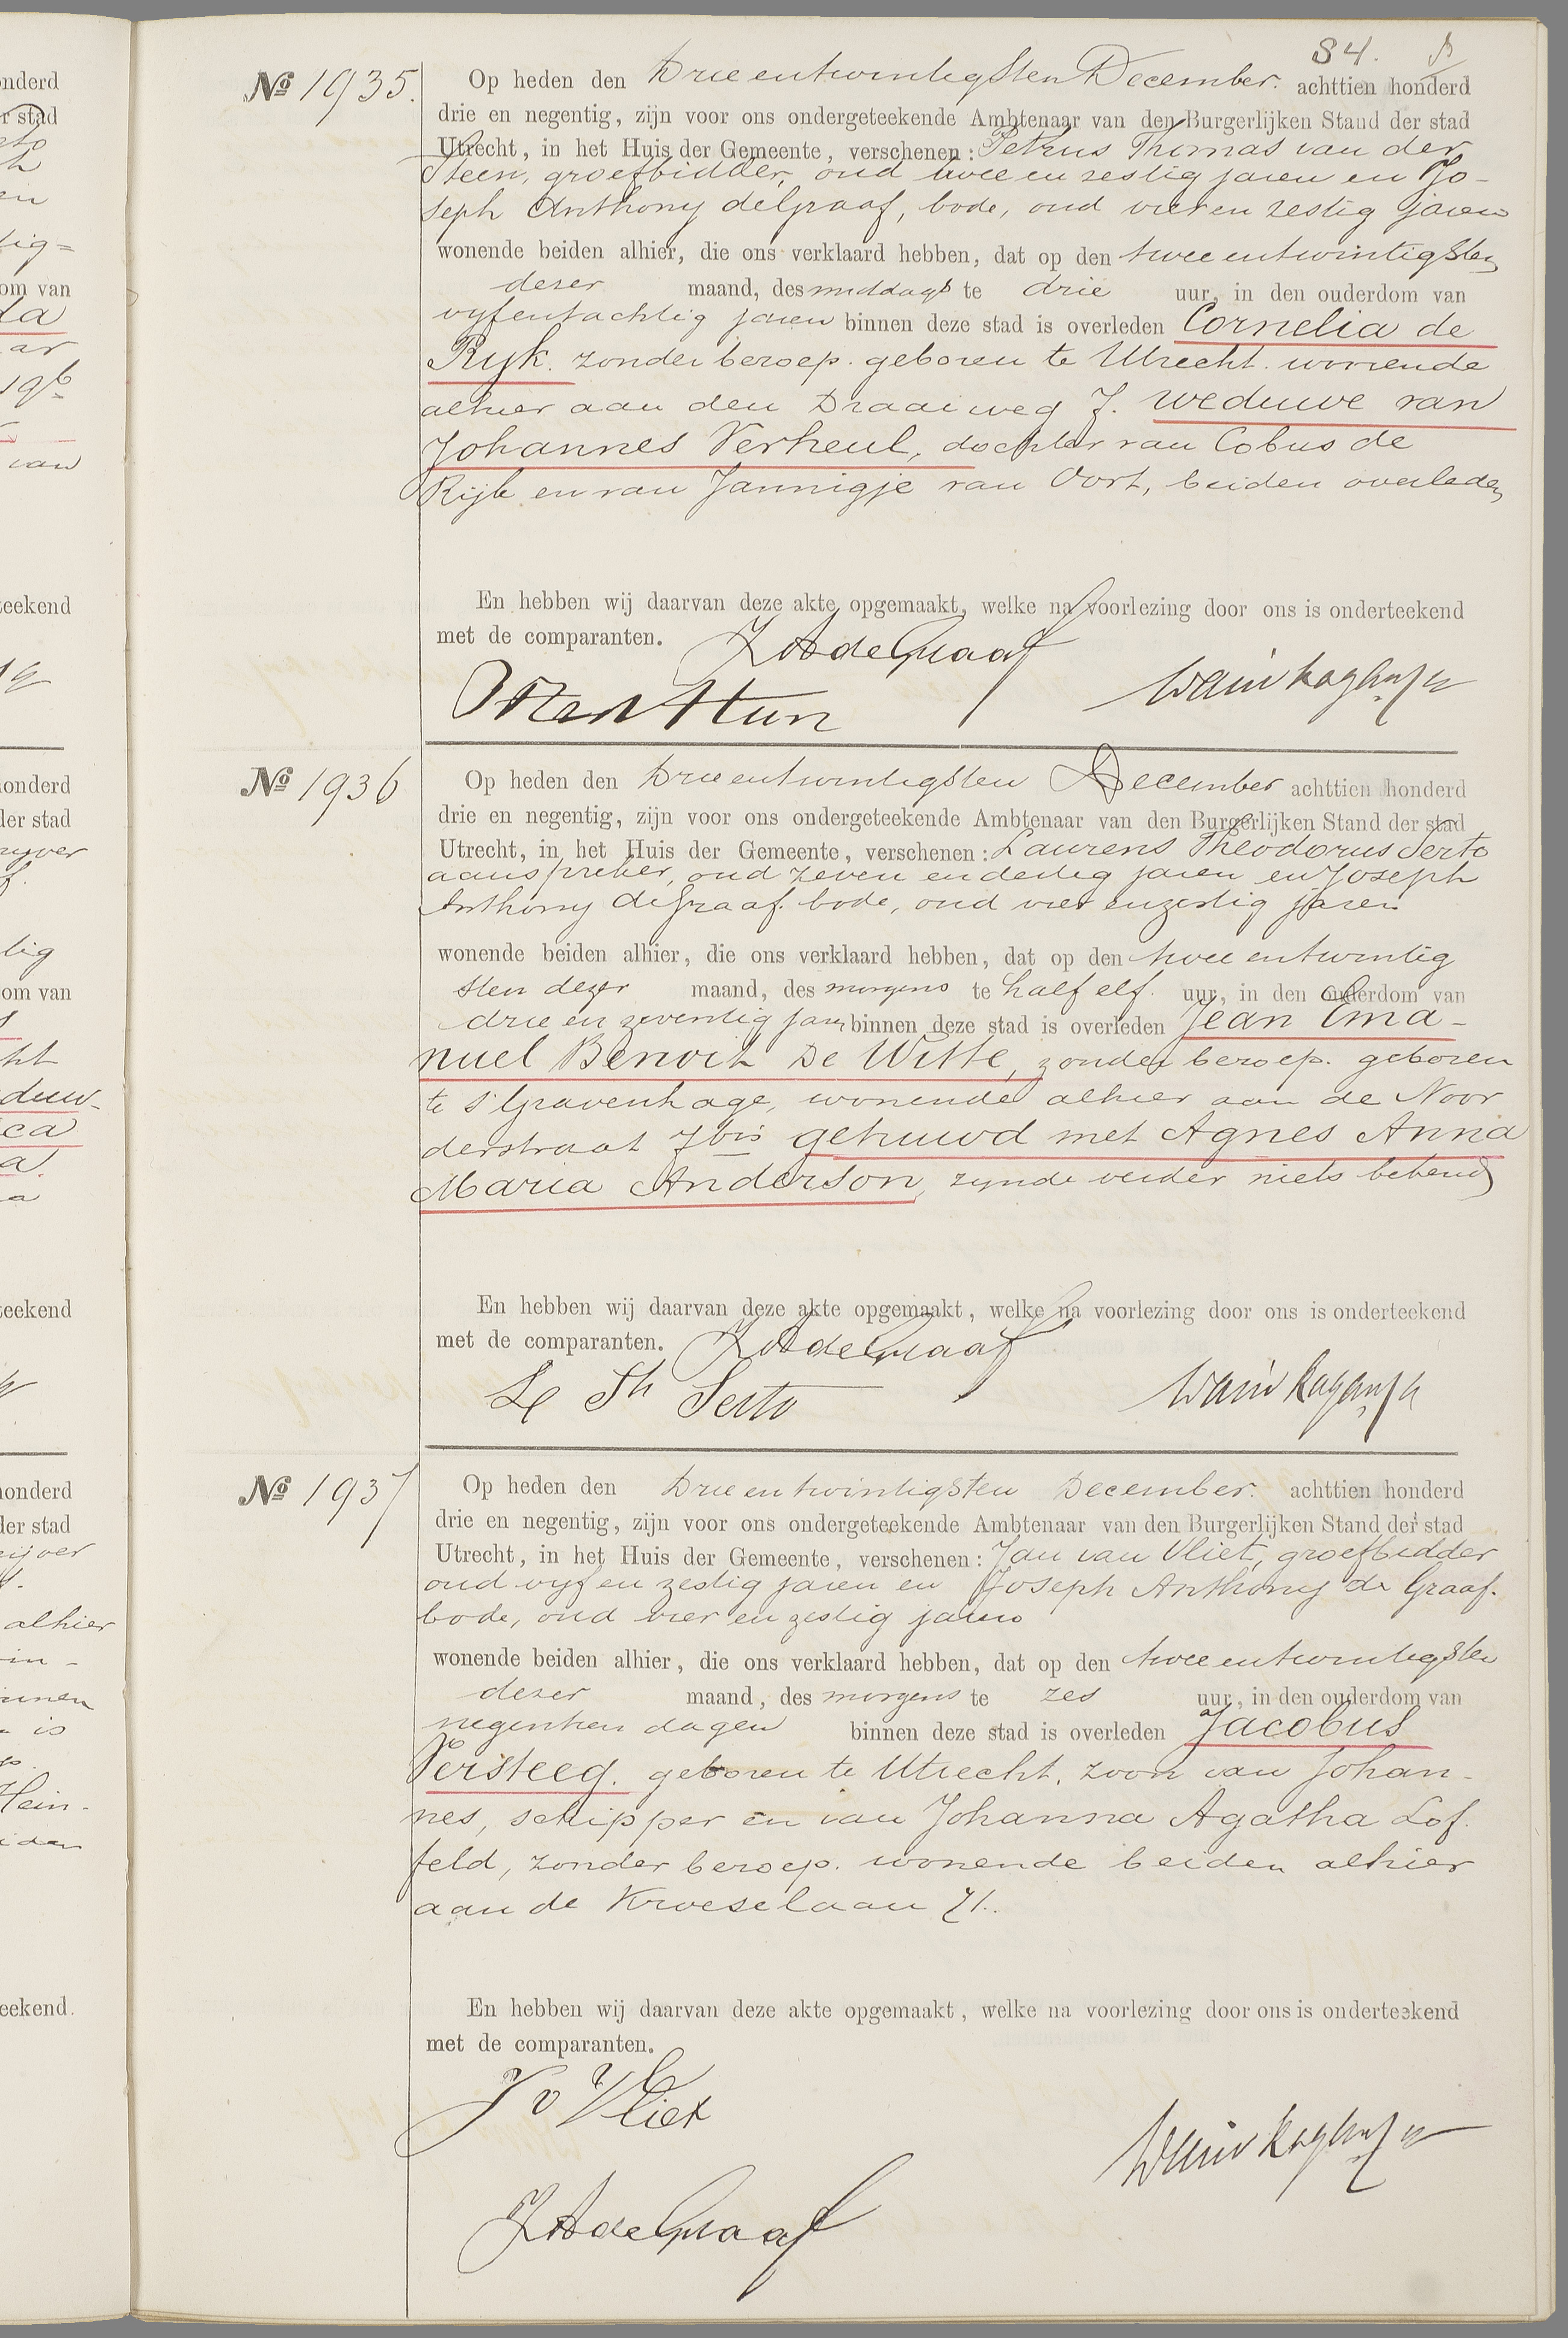 84.
No 1935.
Op heden den Drieentwintigsten December. achttien honderd
drie en negentig, zijn voor ons ondergeteekende Ambtenaar van den Burgerlijken Stand der stad
Utrecht, in het Huis der Gemeente, verschenen: Petrus Thomas van der
Steen, groefbidder, oud twee en zestig jaren en Jo-
seph Anthony de Graaf, bode, oud vier en zestig jaren
wonende beiden alhier, die ons verklaard hebben, dat op den tweeentwintigsten
dezer maand, des middags te drie uur, in den ouderdom van
vyfentachtig jaren binnen deze stad is overleden Cornelia de
Ryk. zonder beroep. geboren te Utrecht. wonende
alhier aan den Draaiweg J. weduwe van
Johannes Verheul, dochter van Cobus de
Rijk en van Jannigje van Oort, beiden overleden
En hebben wij daarvan deze akte opgemaakt, welke na voorlezing door ons is onderteekend
met de comparanten. JAdeGraaf
No 1936
Op heden den Drieentwintigsten December achttien honderd
drie en negentig, zijn voor ons ondergeteekende Ambtenaar van den Burgerlijken Stand der stad
Utrecht, in het Huis der Gemeente, verschenen: Laurens Theodorus Serto
aanspreker, oud zeven en dertig jaren en Joseph
Anthony de Graaf. bode, oud vier en zestig jaren
wonende beiden alhier, die ons verklaard hebben, dat op den twee entwintig
sten dezer maand, des morgens te half elf. uur, in den ouderdom van
drie en zeventig jaren binnen deze stad is overleden Jean Ema-
nuel Benoit De Witte, zonder beroep. geboren
te s'Gravenhage, wonende alhier aan de Noor
derstraat 7bis gehuwd met Agnes Anna
Maria Anderson, zynde verder niets bekend
En hebben wij daarvan deze akte opgemaakt, welke na voorlezing door ons is onderteekend
met de comparanten. JAdeGraaf
L Th Serto
No 1937
Op heden den Drieentwintigsten December. achttien honderd
drie en negentig, zijn voor ons ondergeteekende Ambtenaar van den Burgerlijken Stand der stad
Utrecht, in het Huis der Gemeente, verschenen: Jan van Vliet, groefbidder
oud vyf en zestig jaren en Joseph Anthony de Graaf.
bode, oud vier en zestig jaren
wonende beiden alhier, die ons verklaard hebben, dat op den tweeentwintigsten
dezer maand, des morgens te zes uur, in den ouderdom van
negentien dagen binnen deze stad is overleden Jacobus
Versteeg. geboren te Utrecht, zoon van Johan-
nes, schipper en van Johanna Agatha Lof.
feld, zonder beroep. wonende beiden alhier
aan de Kroeselaan 71.
En hebben wij daarvan deze akte opgemaakt, welke na voorlezing door ons is onderteekend
met de comparanten.
J v Vliet
JAdeGraaf